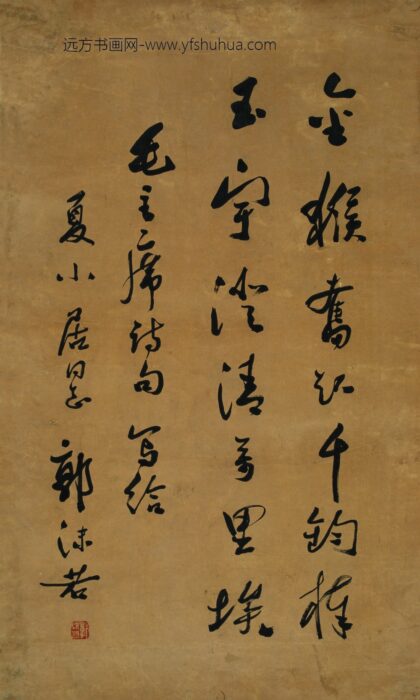 远方书画网-www.yfshuhua.com
金猴奋起千钧棒
玉宇澄清万里埃
毛主席诗句 写给
夏小居同志 郭沫若